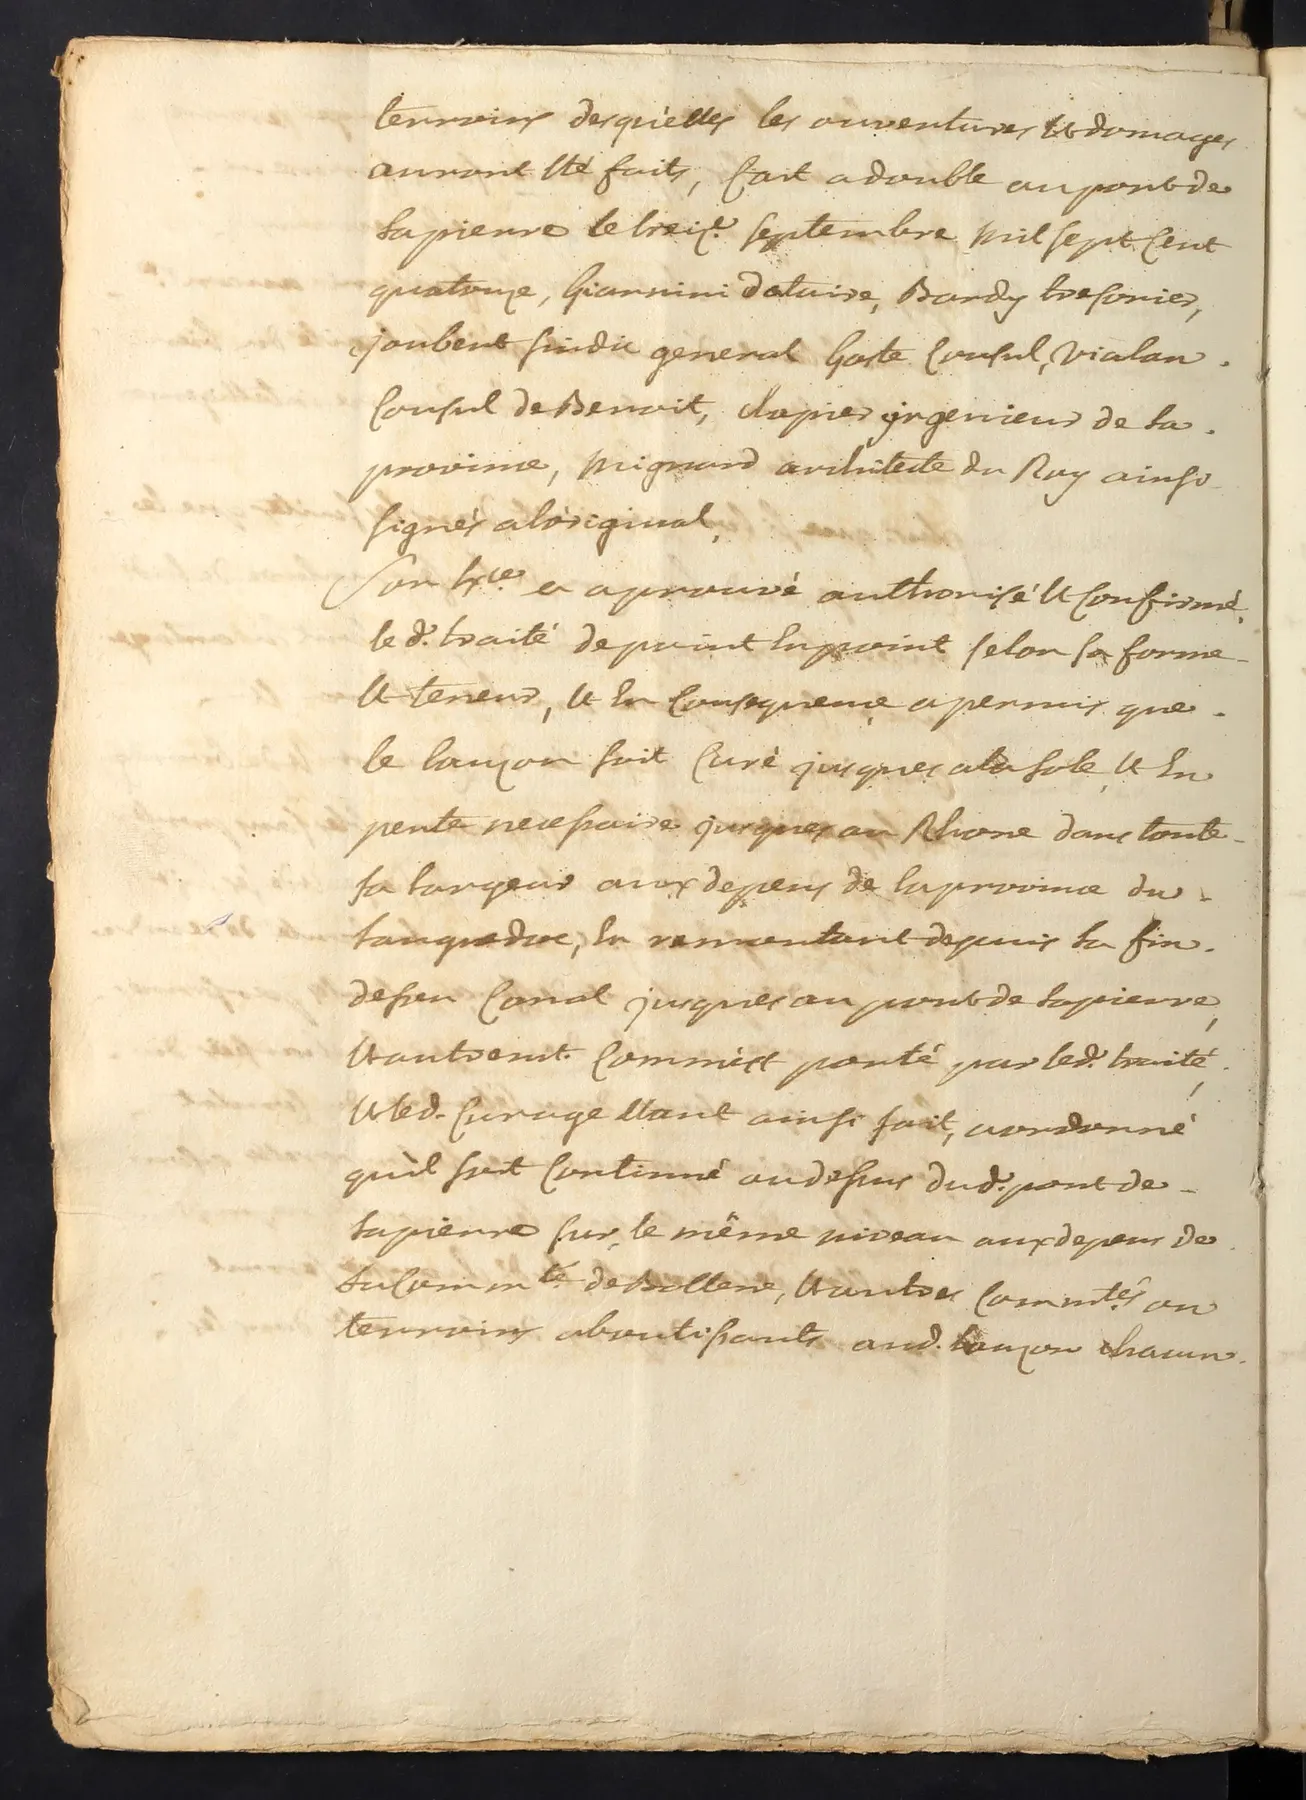 terroirs desquelles les ouvertures et domages
auront été faits, fait a double au pont de
la pierre le treize. septembre mil sept cent
quatorze, Giannini dataire, Bardy tresorier,
joubert sindic general Coste Consul, Vialan.
Consul de Benoit, clapies jngenieur de la.
province, Mignard architecte du Roy ainsi
signés a lóriginal,
Son Exce. a aprouvé authorisé et Confirmé,
le d. traité de point en point selon sa forme
et teneur, et en Consequence a permis que.
le lauzon soit Curé jusques a la sole, et en
pente necessaire jusques au Rhone dans toute
sa largeur aux depens de la province du.
languedoc, en remontant depuis la fin.
de sieu Canal jusques au pont de la pierre,
et autremt. Comme est porté par led. traité,
et led. Curage etant ainsi fait, a ordonné
quil soit Continué au dessus dud. pont de
la pierre sur le même niveau aux depens de
la Commté. de Bollene, et autres Commtés. ou
terroirs aboutissants aud. lauzon chacun